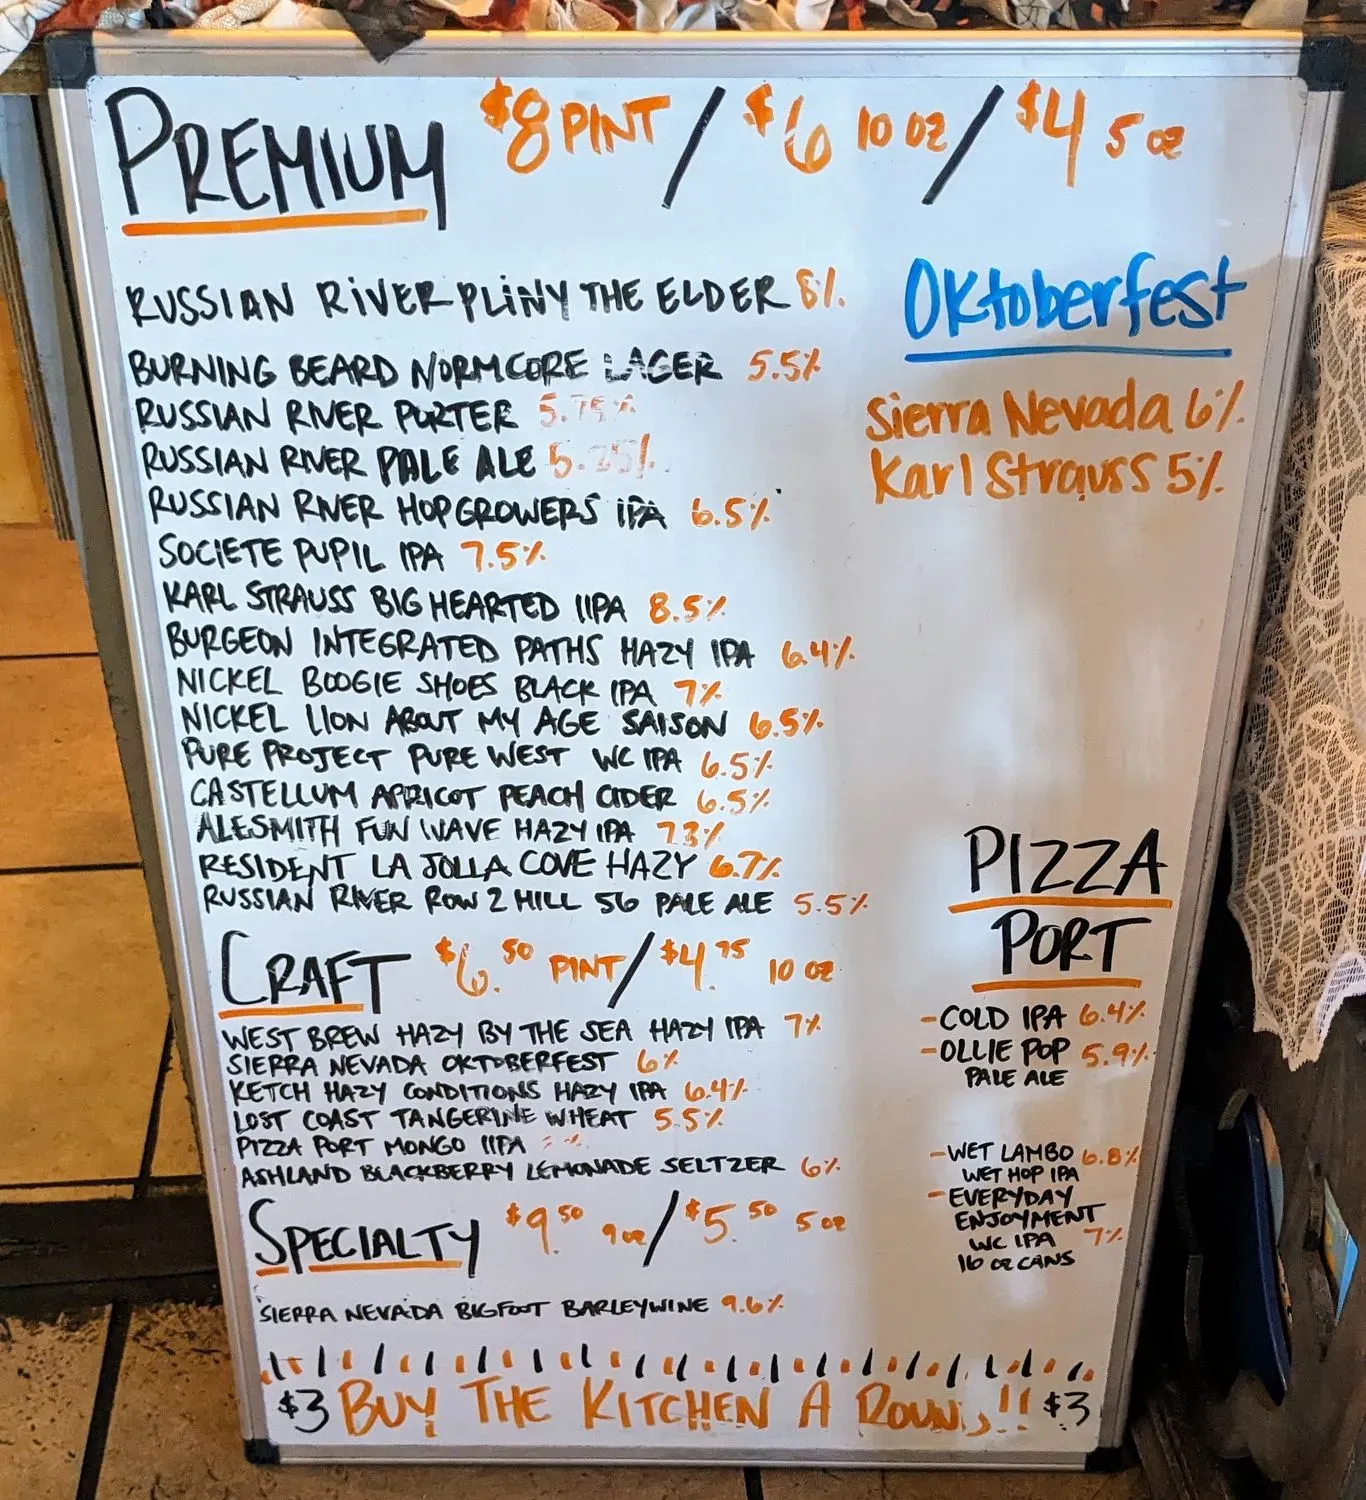 PREMIUM $8 PINT / $6 10 OZ / $4 5 OZ
RUSSIAN RIVER PLINY THE ELDER 8%
BURNING BEARD NORMCORE LAGER 5.5%
RUSSIAN RIVER PORTER 5.75%
RUSSIAN RIVER PALE ALE 5.25%
RUSSIAN RIVER HOPGROWERS IPA 6.5%
SOCIETE PUPIL IPA 7.5%
KARL STRAUSS BIG HEARTED IIPA 8.5%
BURGEON INTEGRATED PATHS HAZY IPA 6.4%
NICKEL BOOGIE SHOES BLACK IPA 7%
NICKEL LION ABOUT MY AGE SAISON 6.5%
PURE PROJECT PURE WEST WC IPA 6.5%
CASTELLUM APRICOT PEACH CIDER 6.5%
ALESMITH FUN WAVE HAZY IPA 7.3%
RESIDENT LA JOLLA COVE HAZY 6.7%
RUSSIAN RIVER ROW 2 HILL 56 PALE ALE 5.5%
Oktoberfest
Sierra Nevada 6%
Karl Strauss 5%
CRAFT $6.50 PINT / $4.75 10 OZ
WEST BREW HAZY BY THE SEA HAZY IPA 7%
SIERRA NEVADA OKTOBERFEST 6%
KETCH HAZY CONDITIONS HAZY IPA 6.4%
LOST COAST TANGERINE WHEAT 5.5%
PIZZA PORT MONGO IIPA
ASHLAND BLACKBERRY LEMONADE SELTZER 6%
PIZZA
PORT
- COLD IPA 6.4%
- OLLIE POP 5.9%
PALE ALE
- WET LAMBO 6.8%
WET HOP IPA
- EVERYDAY
ENJOYMENT
WC IPA 7%
16 OZ CANS
SPECIALTY $9.50 9 OZ / $5.50 5 OZ
SIERRA NEVADA BIGFOOT BARLEYWINE 9.6%
$3 BUY THE KITCHEN A ROUND!! $3